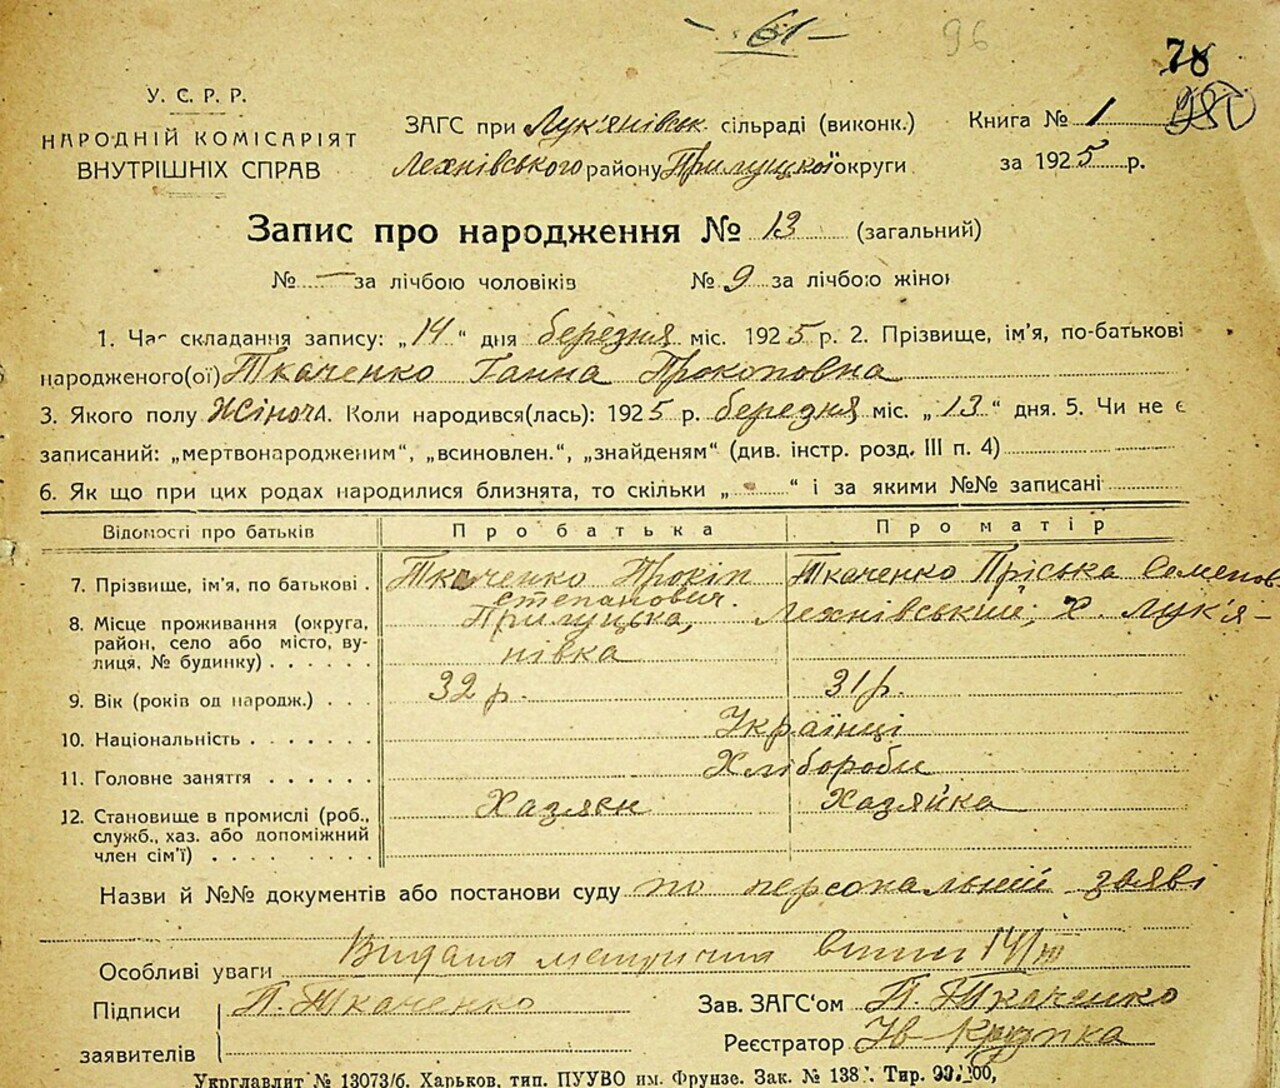 - 61 -
96
78
У. С. Р. Р.
НАРОДНІЙ КОМІСАРІЯТ
ВНУТРІШНІХ СПРАВ
ЗАГС при Лук'янівськ. сільраді (виконк.)
Лехнівського району Прилуцкої округи
Книга № 1
за 1925 р.
Запис про народження № 13 (загальний)
№ — за лічбою чоловіків № 9 за лічбою жінок
1. Час складання запису: „14“ дня березня міс. 1925 р. 2. Прізвище, ім'я, по-батькові
народженого(ої) Ткаченко Ганна Прокоповна
3. Якого полу Жіноча. Коли народився(лась): 1925 р. березня міс. „13“ дня. 5. Чи не є
записаний: „мертвонародженим“, „всиновлен.“, „знайденям“ (див. інстр. розд. III п. 4)
6. Як що при цих родах народилися близнята, то скільки „ “ і за якими №№ записані
Відомості про батьків Про батька Про матір
7. Прізвище, ім'я, по батькові . Ткаченко Прокіп Степанович. Ткаченко Пріська Семенов.
8. Місце проживання (округа, район, село або місто, вулиця, № будинку) . . . . . . Прилуцька, Лехнівський, Х. Лук'я-
нівка
9. Вік (років од народж.) . . . 32 р. 31 р.
10. Національність . . . . . . . Українці
11. Головне заняття . . . . . . Хлібороби
12. Становище в промислі (роб., служб., хаз. або допоміжний член сім'ї) . . . . Хазяєн Хазяйка
Назви й №№ документів або постанови суду по персональній заяві
Особливі уваги Видана метрична випис 14/III
Підписи П. Ткаченко
заявителів
Зав. ЗАГС'ом П. Ткаченко
Реєстратор Ів Крупка
Укрглавлит № 13073/б. Харьков, тип. ПУУВО им. Фрунзе. Зак. № 138 Тир.